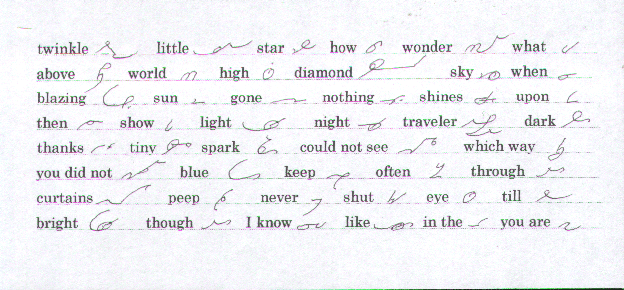 twinkle little star how wonder what
above world high diamond sky when
blazing sun gone nothing shines upon
then show light night traveler dark
thanks tiny spark could not see which way
you did not blue keep often through
curtains peep never shut eye till
bright though I know like in the you are